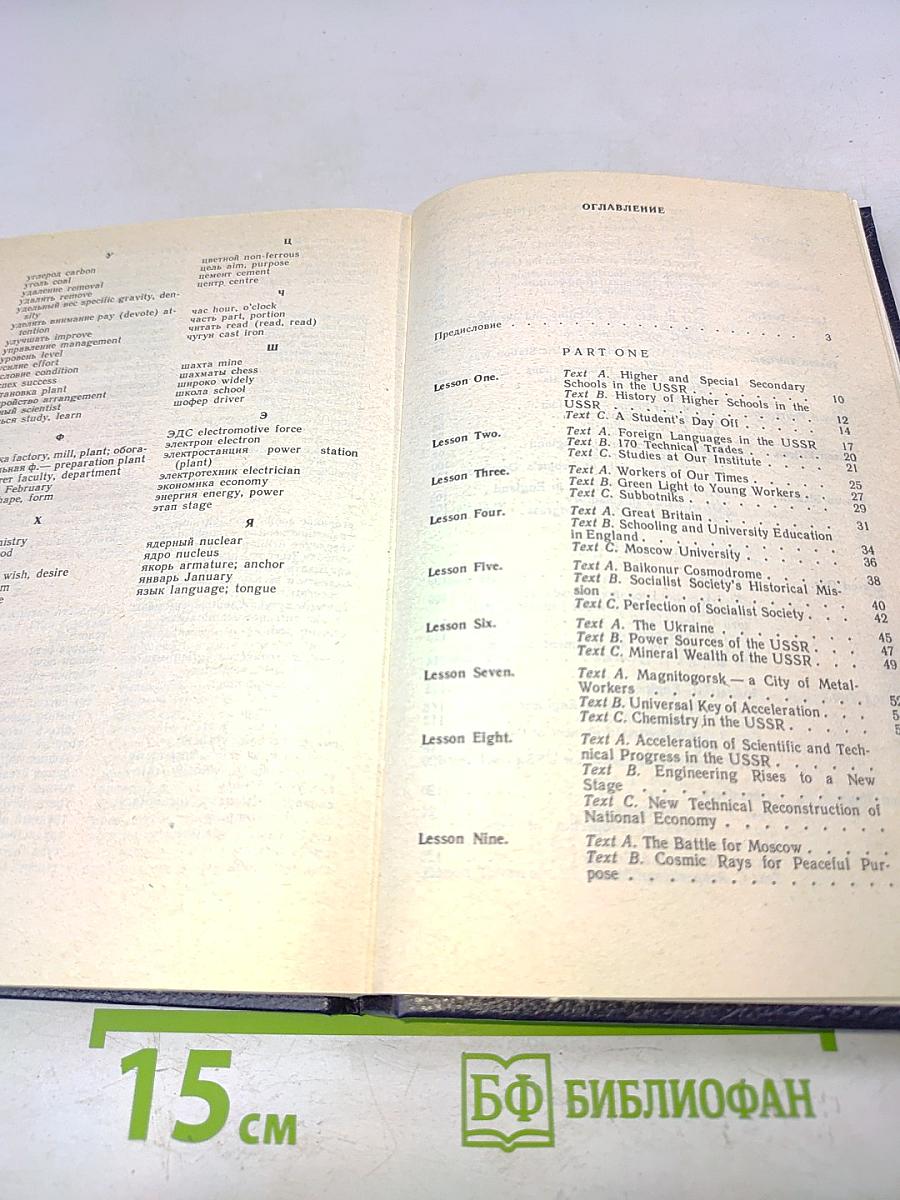 У
углерод carbon
уголь coal
удаление removal
удалять remove
удельный вес specific gravity, den-
sity
уделять внимание pay (devote) at-
tention
улучшать improve
управление management
уровень level
усилие effort
условие condition
success
plant
arrangement
scientist
study, learn
Ф
factory, mill, plant; обога-
ф.— preparation plant
faculty, department
February
shape, form
Х
wish, desire
Ц
цветной non-ferrous
цель aim, purpose
цемент cement
центр centre
Ч
час hour, o'clock
часть part, portion
читать read (read, read)
чугун cast iron
Ш
шахта mine
шахматы chess
широко widely
школа school
шофер driver
Э
ЭДС electromotive force
электрон electron
электростанция power station
(plant)
электротехник electrician
экономика economy
энергия energy, power
этап stage
Я
ядерный nuclear
ядро nucleus
якорь armature; anchor
январь January
язык language; tongue
ОГЛАВЛЕНИЕ
Предисловие . . . . . . . . . . . . . . . . 3
PART ONE
Lesson One. Text A. Higher and Special Secondary
Schools in the USSR . . . . . . . . 10
Text B. History of Higher Schools in the
USSR . . . . . . . . . . . . 12
Text C. A Student's Day Off . . . . . 14
Lesson Two. Text A. Foreign Languages in the USSR 17
Text B. 170 Technical Trades . . . . . 20
Text C. Studies at Our Institute . . . . 21
Lesson Three. Text A. Workers of Our Times . . . . 25
Text B. Green Light to Young Workers . . 27
Text C. Subbotniks . . . . . . . . 29
Lesson Four. Text A. Great Britain . . . . . . . 31
Text B. Schooling and University Education
in England . . . . . . . . . . 34
Text C. Moscow University . . . . . . 36
Lesson Five. Text A. Baikonur Cosmodrome . . . . . 38
Text B. Socialist Society's Historical Mis-
sion . . . . . . . . . . . . 40
Text C. Perfection of Socialist Society . . . 42
Lesson Six. Text A. The Ukraine . . . . . . . . 45
Text B. Power Sources of the USSR . . . 47
Text C. Mineral Wealth of the USSR . . . 49
Lesson Seven. Text A. Magnitogorsk — a City of Metal-
Workers . . . . . . . . . . .
Text B. Universal Key of Acceleration . . .
Text C. Chemistry in the USSR . . . . .
Lesson Eight. Text A. Acceleration of Scientific and Tech-
nical Progress in the USSR . . . . . .
Text B. Engineering Rises to a New
Stage . . . . . . . . . . . .
Text C. New Technical Reconstruction of
National Economy . . . . . . . . .
Lesson Nine. Text A. The Battle for Moscow . . . . .
Text B. Cosmic Rays for Peaceful Pur-
pose . . . . . . . . . . . . .
15 см
БФ БИБЛИОФАН